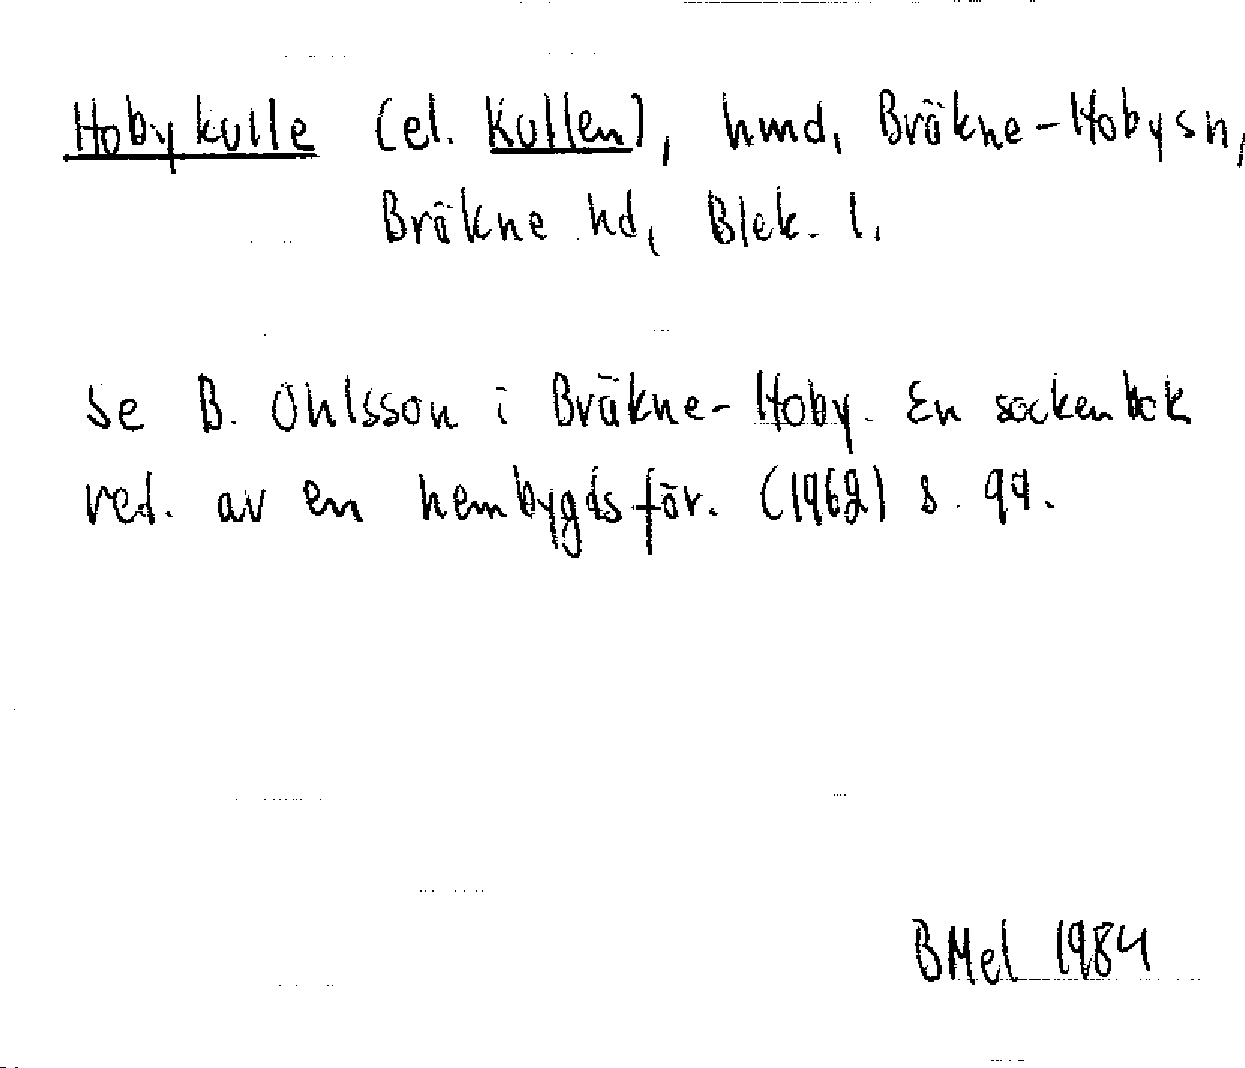 Hobykulle (el. Kullen), hmd, Bräkne-Hoby sn,
Bräkne hd, Blek. l.
Se B. Ohlsson i Bräkne-Hoby. En sockenbok
red. av en hembygdsför. (1962) s. 99.
BMel 1984